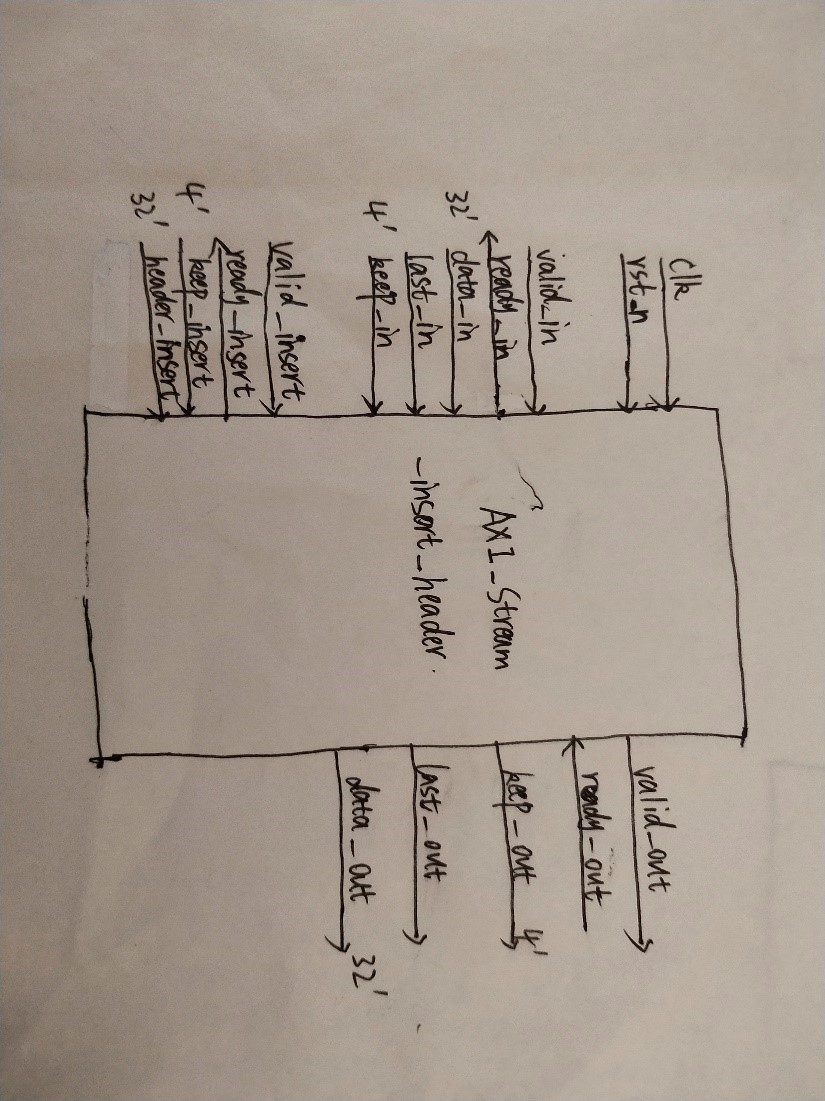 clk
rst_n
valid_in
ready_in
32' data_in
last_in
4' keep_in
valid_insert
ready_insert
4' keep_insert
32' header_insert
AXI_Stream
_insert_header.
valid_out
ready_out
keep_out 4'
last_out
data_out 32'